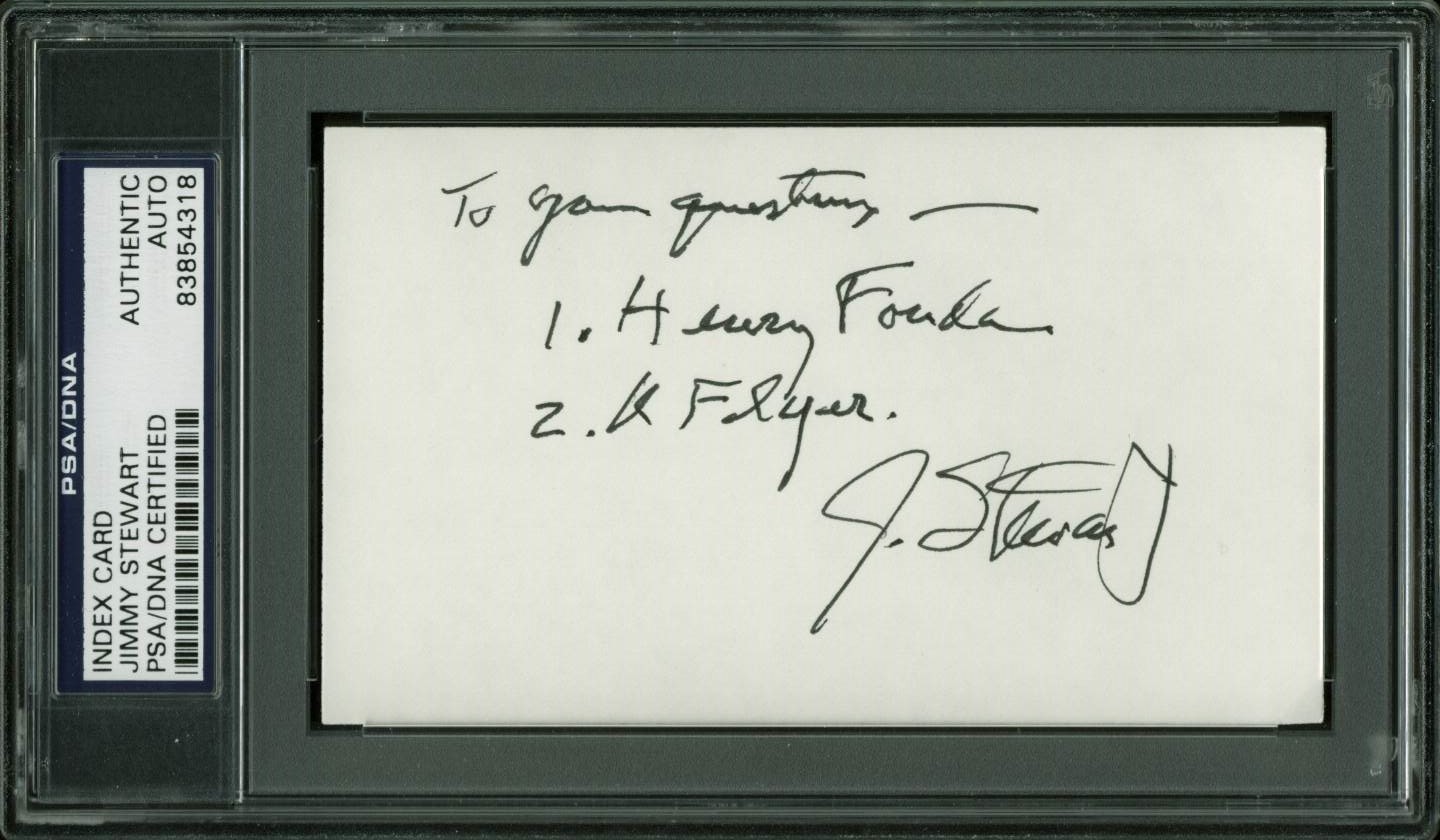 PSA/DNA
INDEX CARD
JIMMY STEWART
PSA/DNA CERTIFIED
AUTHENTIC
AUTO
83854318
To your questions —
1. Henry Fonda
2. A Flyer.
J. Stewart